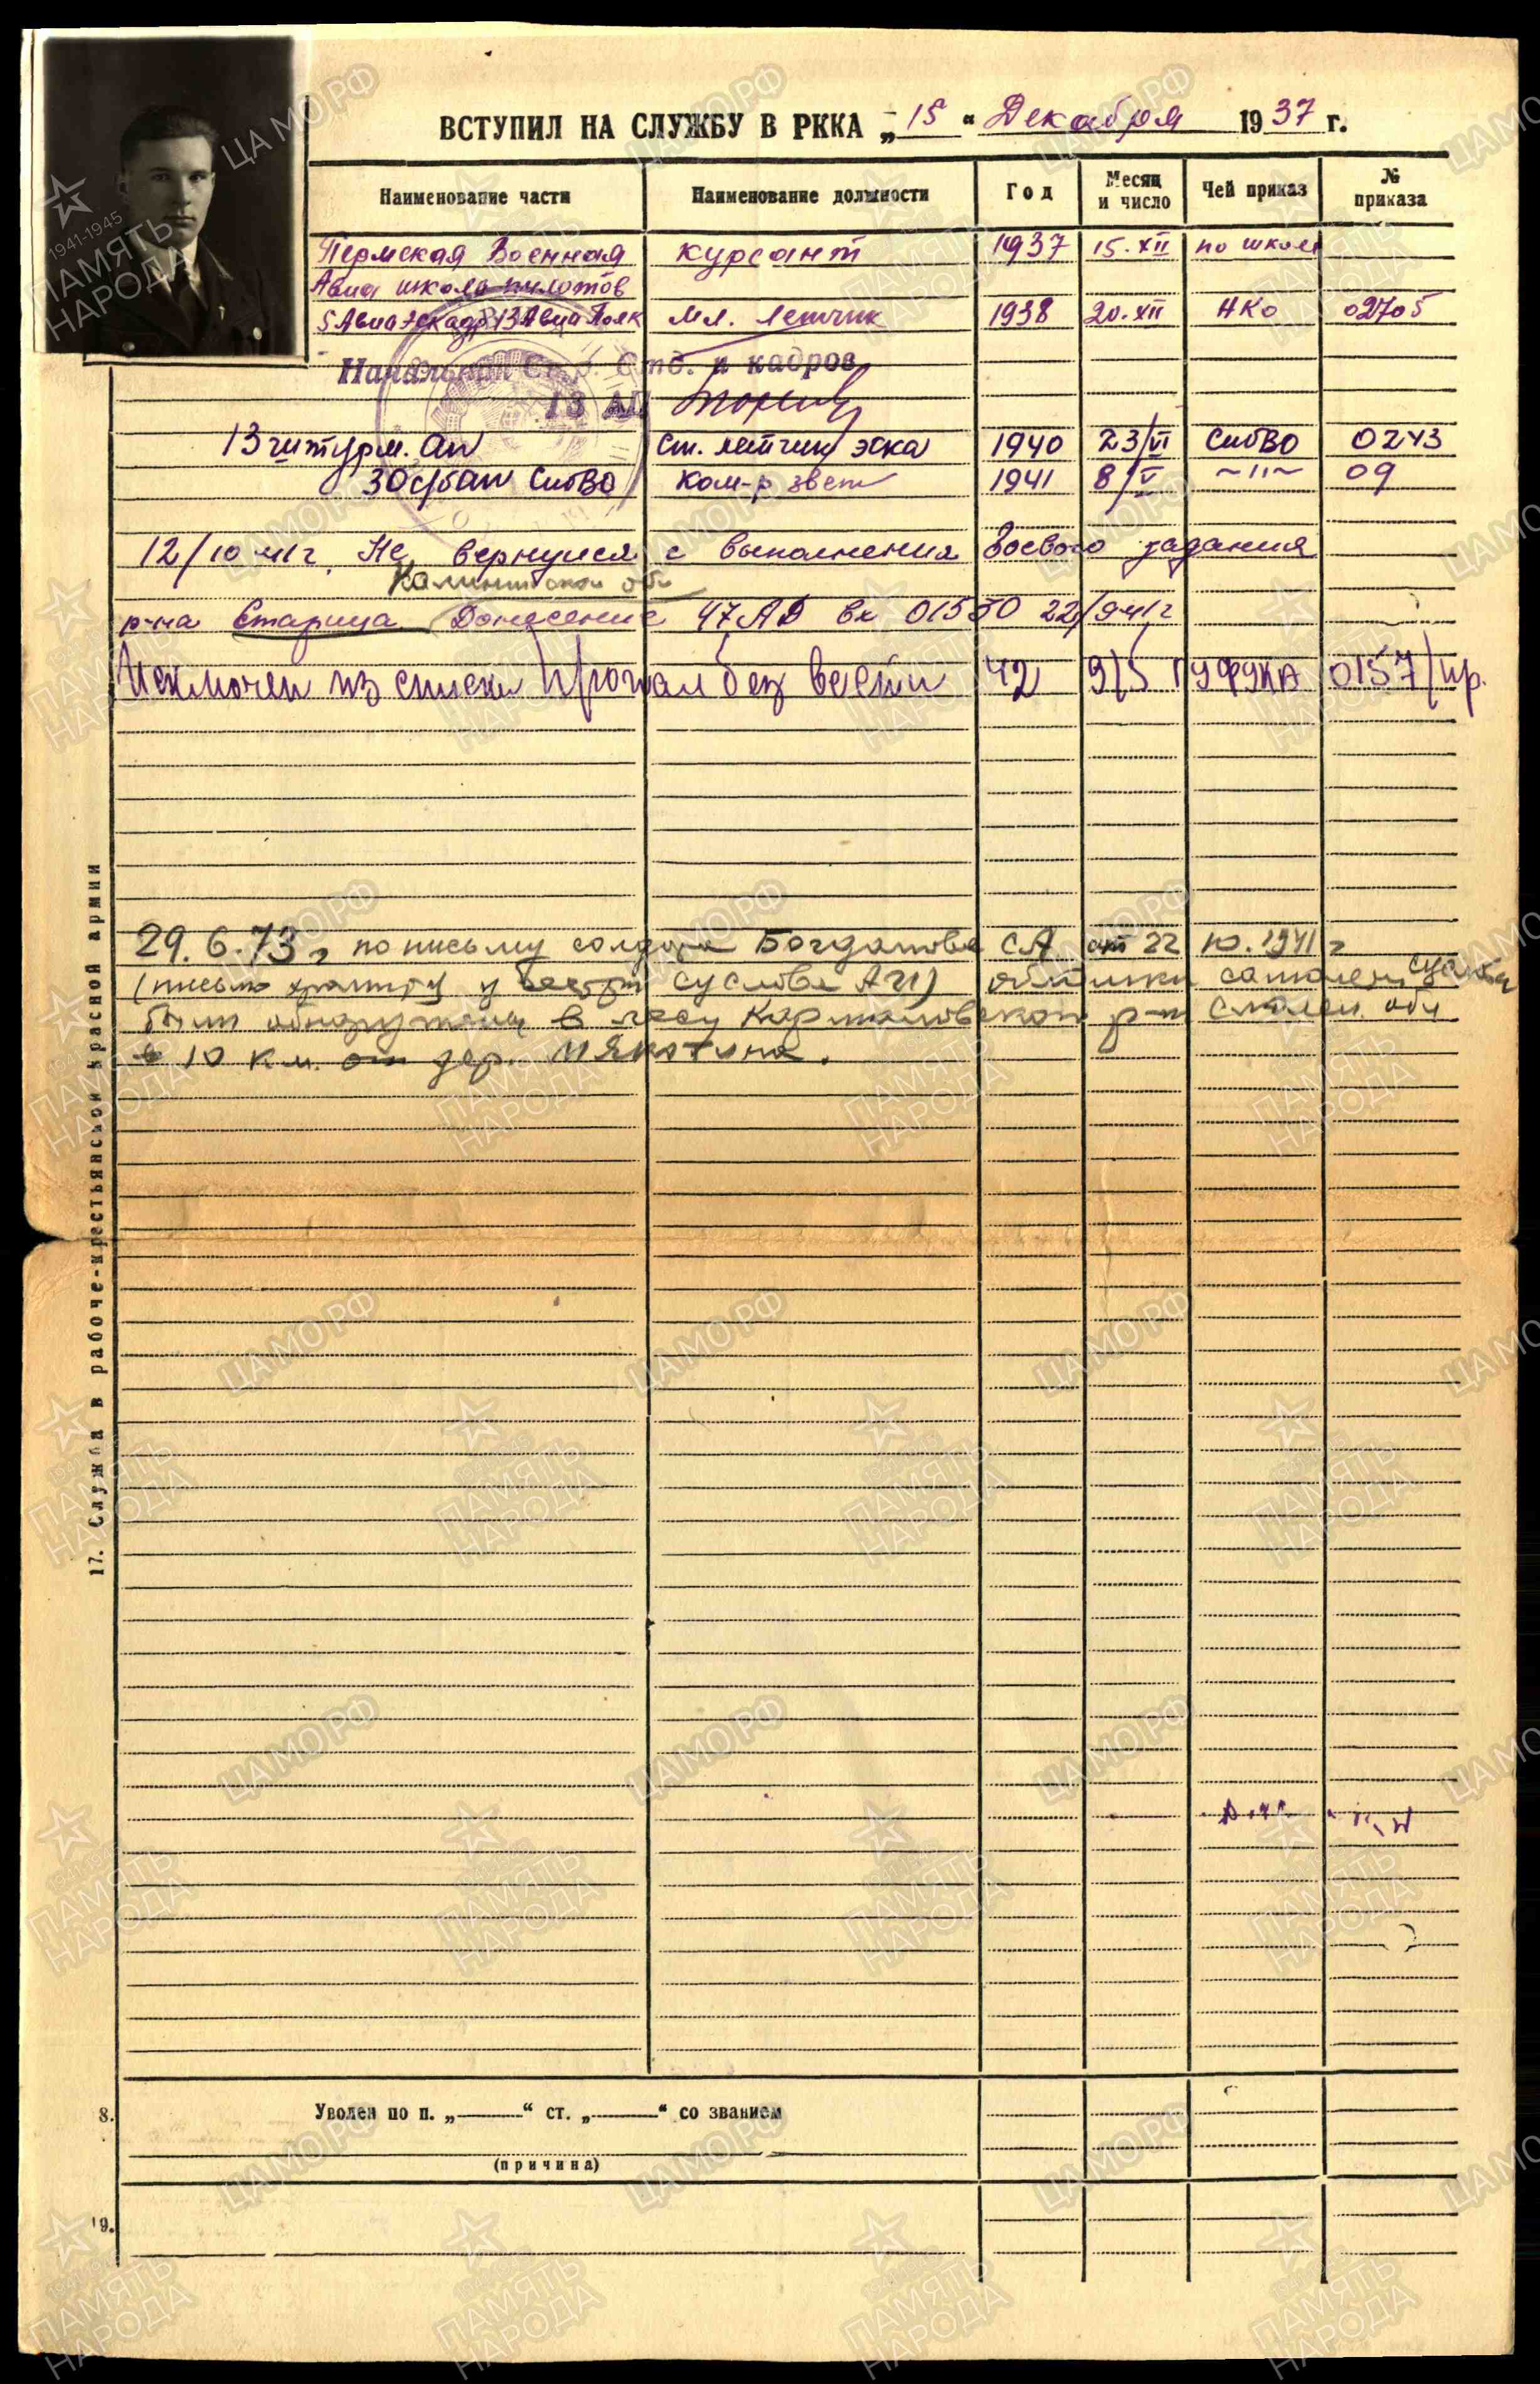 ВСТУПИЛ НА СЛУЖБУ В РККА „15“ Декабря 1937 г.
Наименование части Наименование должности Год Месяц и число Чей приказ № приказа
Пермская Военная курсант 1937 15.XII по школе
Авиа школа пилотов
5 Авиаэскадр 13 Авиа Полк Мл. Летчик 1938 20.XII НКО 02705
Начальник Отд. кадров
13
13 штурм. ап Ст. летчик эска 1940 23/VI СибВО 0243
30 с/бап СибВО Ком-р звена 1941 8/V ~"~ 09
12/10 41 г. Не вернулся с выполнения боевого задания
Калининской обл
р-на Старица Донесение 47 АД вх 01550 22/9 41 г
Исключен из списков пропал без вести 42 9/5 ГУФУКА 0157/пр.
29.6.73 г по письму солдата Богданова СА от 22 10.1941 г
(письмо хранится у сестры Суслова А И) обломки самолета Суслова
были обнаружены в лесу Кармановского р-на Смолен. обл
в 10 км. от дер. Мякотина.
17. Служба в рабоче-крестьянской красной армии
8. Уволен по п. „——“ ст. „——“ со званием
(причина)
19.
ЦАМО.РФ
1941-1945
ПАМЯТЬ
НАРОДА